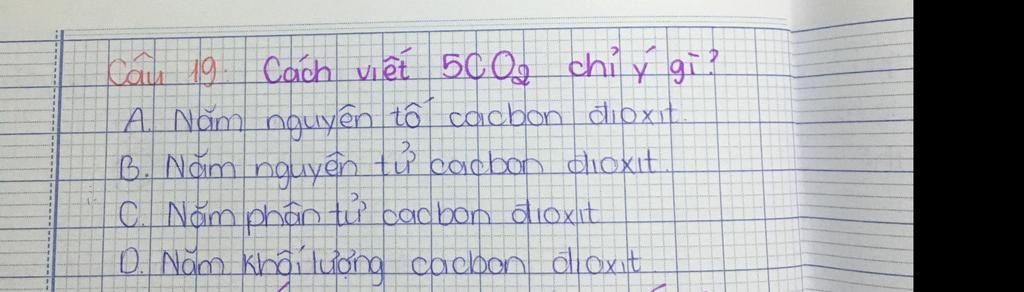 Câu 19. Cách viết 5CO₂ chỉ ý gì?
A. Năm nguyên tố cacbon dioxit.
B. Năm nguyên tử cacbon dioxit.
C. Năm phân tử cacbon dioxit
D. Năm khối lượng cacbon dioxit